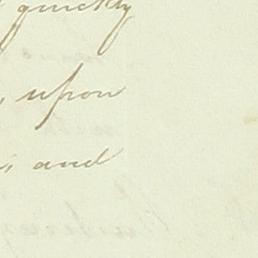 quickly
, upon
; and